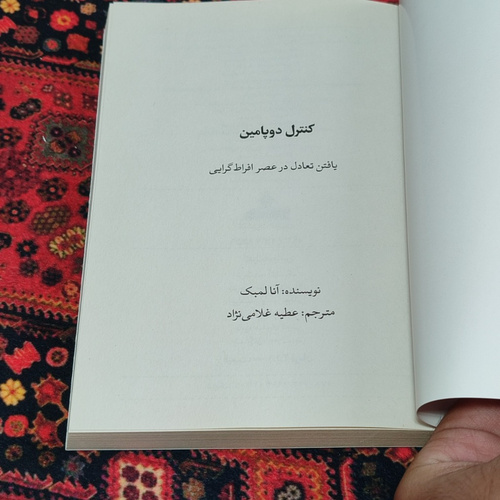 کنترل دوپامین
یافتن تعادل در عصر افراط‌گرایی
نویسنده: آنا لمبک
مترجم: عطیه غلامی‌نژاد